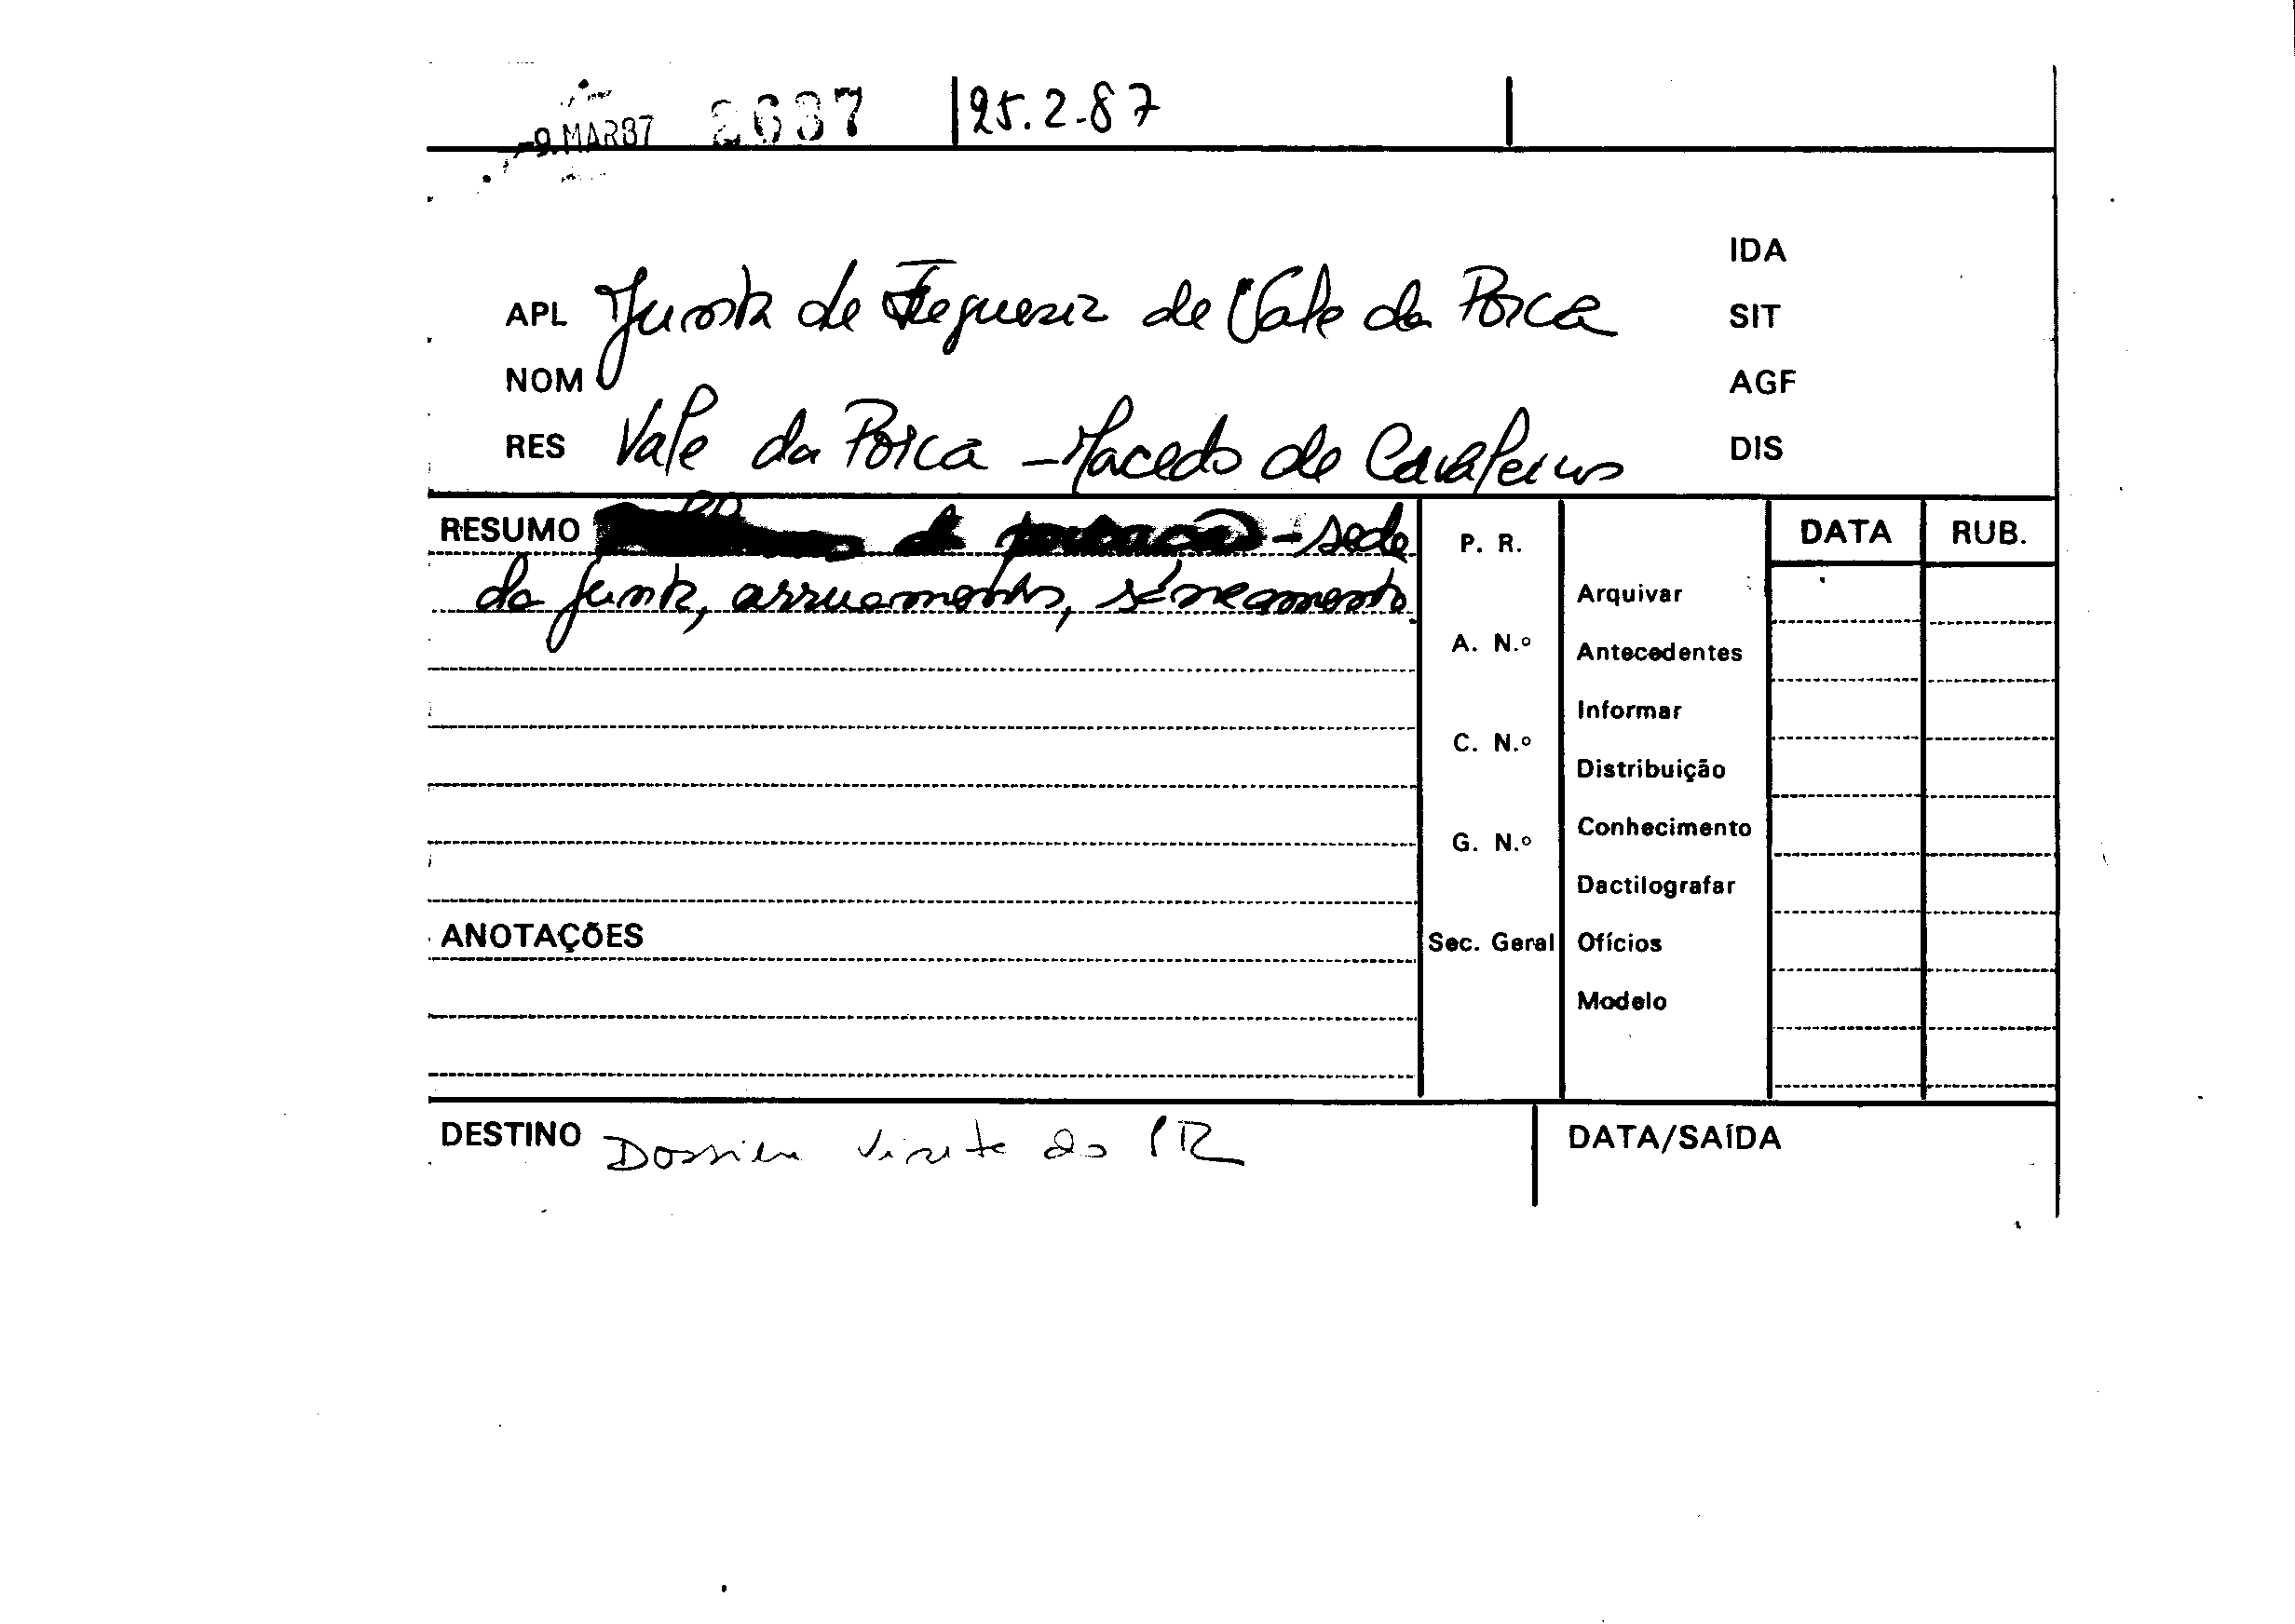 -9.MAR87 2637 25.2-87
IDA
APL Junta de Freguesia de Vale da Porca
SIT
NOM
AGF
RES Vale da Porca - Macedo de Cavaleiros
DIS
RESUMO - sede
da junta, arruamentos, saneamento.
P. R.
DATA RUB.
Arquivar
A. N.º
Antecedentes
Informar
C. N.º
Distribuição
Conhecimento
G. N.º
Dactilografar
ANOTAÇÕES
Sec. Geral Ofícios
Modelo
DESTINO Dossier visita do PR
DATA/SAÍDA